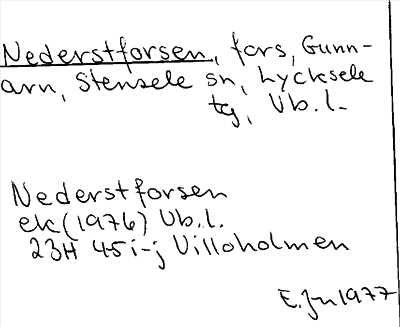 Nederstforsen, fors, Gunn-
arn, Stensele sn, Lycksele
tg, Vb.l.
Nederstforsen
ek (1976) Vb.l.
23H 45i-j Villoholmen
E. Jn 1977